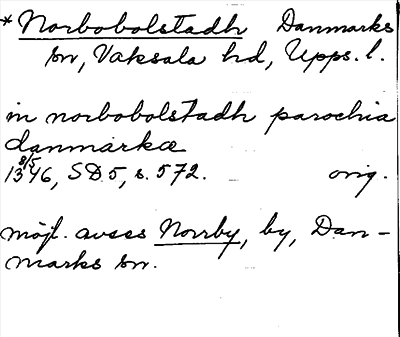 *Norbobolstadh Danmarks
sn, Vaksala hd, Upps. l.
in norbobolstadh parochia
danmarkæ
8/5
1346, SD 5, s. 572. orig.
möjl. avses Norrby, by, Dan-
marks sn.